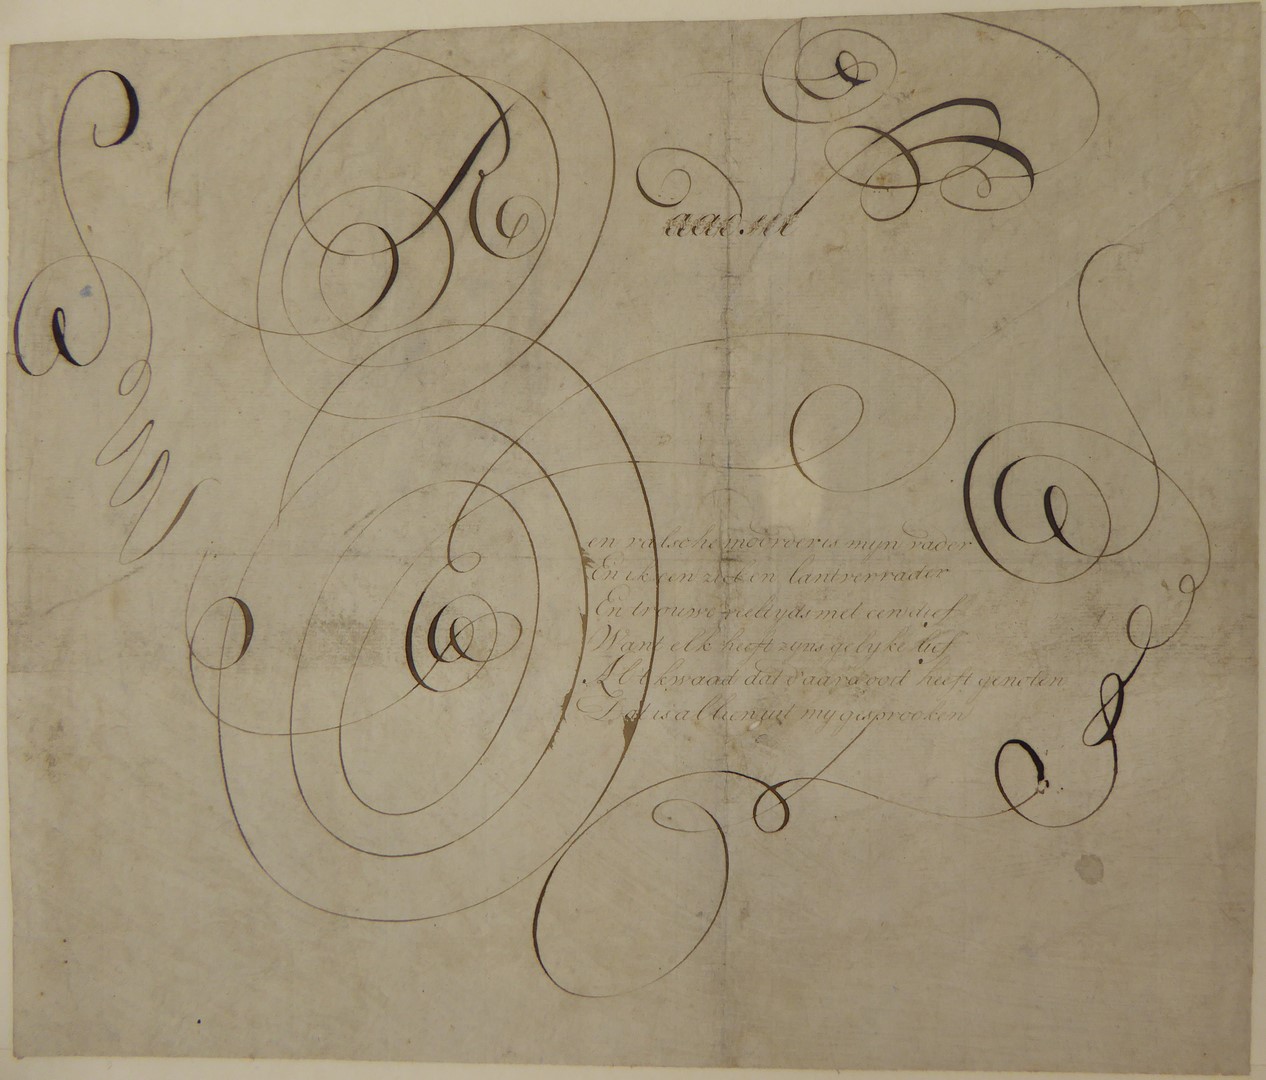 Raadsel
Een valsche moorder is mijn vader
En ik een ziel en lantverrader
En trouwe veeltyds met een dief
Want elk heeft zyns gelyke lief
Al t kwaad dat d'aard ooit heeft genoten
Dat is allien uit my gesprooten